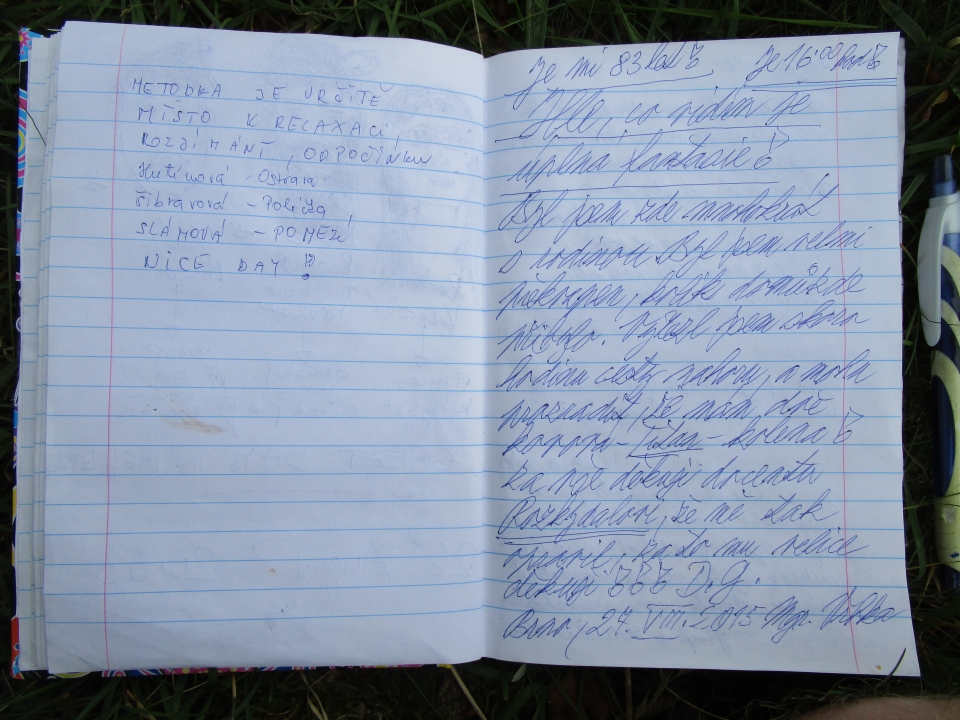 METODKA JE URČITĚ
MÍSTO K RELAXACI,
ROZJÍMÁNÍ, ODPOČINKU
Hutinová - Ostrava
Čibravová - Polička
SLÁMOVÁ - POMEZÍ
NICE DAY !!
Je mi 83 let! Je 16:00 hod!
co vidím je
úplná fantasie!
Byl jsem zde mnohokrát
s rodinou. Byl jsem velmi
překvapen, kolik domů zde
přibylo. Vyšel jsem skoro
hodinu cesty nahoru, a mohu
prozradit, že mám dvě
kovová - Titan - kolena!
Za něž děkuji docentu
že mě tak
opravil, za to mu velice
děkuji !!! D.G.
Brno, 27. VIII. 2015 Mgr.